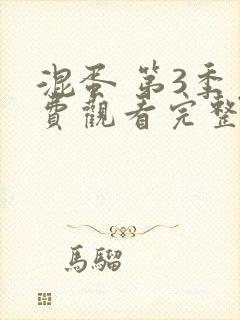 混蛋 第3季
費觀看完整
馬騮